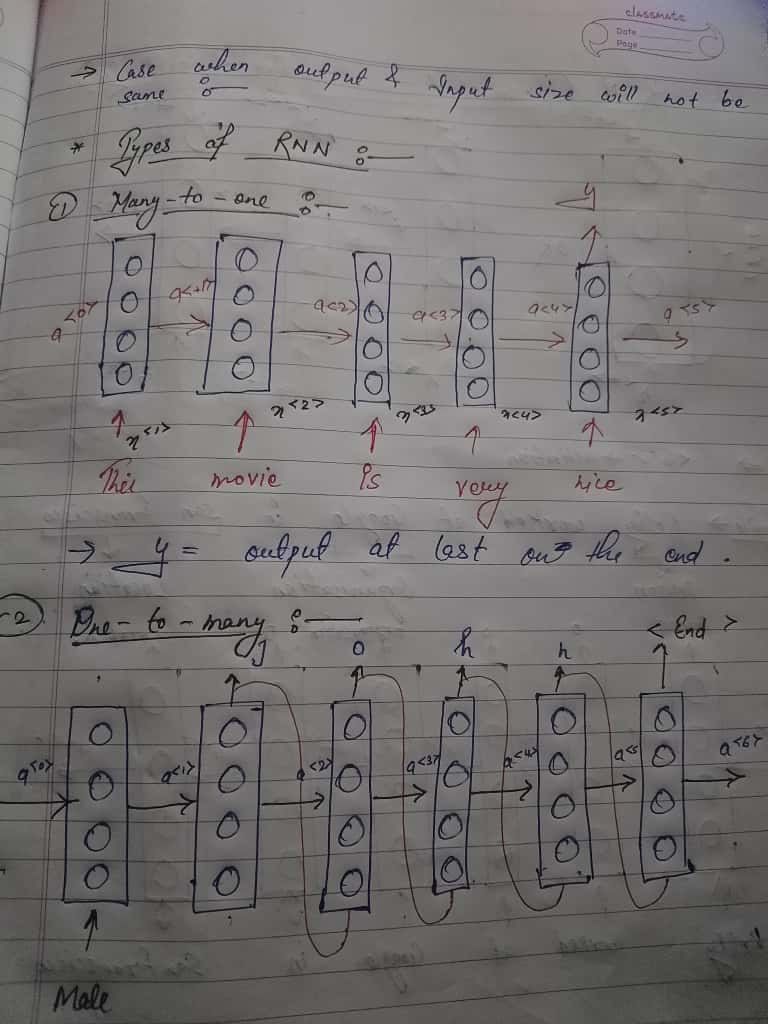 classmate
Date
Page
→ Case when output & Input size will not be
same :—
* Types of RNN :—
① Many-to-one :—
y
a<0> a<1> a<2> a<3> a<4> a<5>
x<1> x<2> x<3> x<4> x<5>
This movie is very nice
→ y = output at last on the end.
2 One-to-many :—
j o h n <End>
a<0> a<1> a<2> a<3> a<4> a<5 a<6>
Male